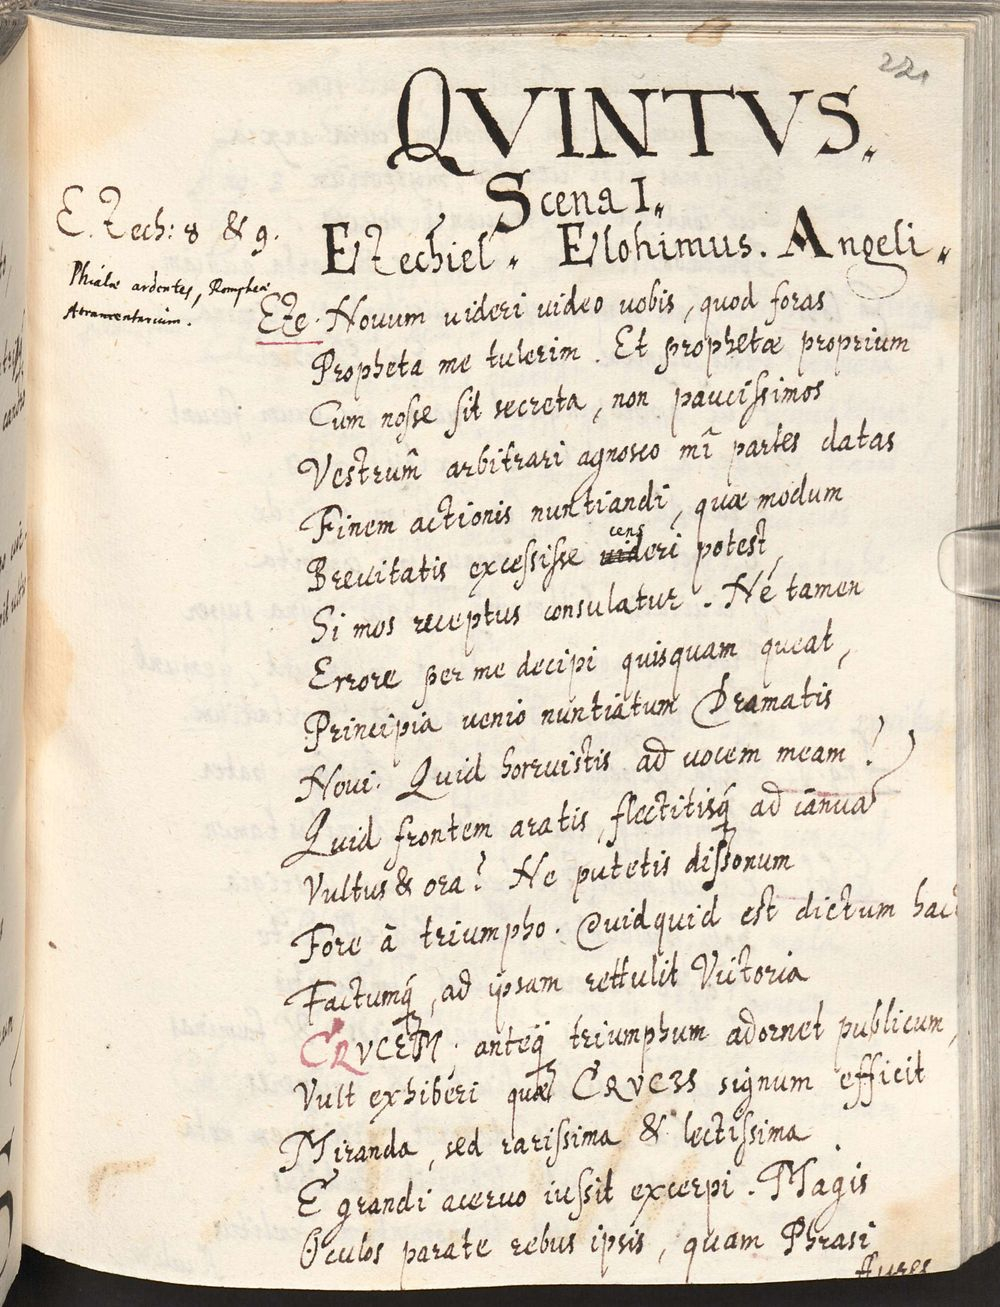 221
QVINTVS.
Scena I.
Ezech: 8 & 9.
Ezechiel. Elohimus. Angeli.
Phialæ ardentes, Rompheæ
Atramentarium.
Eze. Novum uideri uideo uobis, quod foras
Propheta me tulerim. Et prophetæ proprium
Cum nosse sit secreta, non paucissimos
Vestrum̃ arbitrari agnosco mi᷃ partes datas
Finem actionis nuntiandi, quæ modum
Breuitatis excessisse censeri potest,
Si mos receptus consulatur. Né tamen
Errore per me decipi quisquam queat,
Principia uenio nuntiatum Dramatis
Noui. Quid horruistis ad uocem meam?
Quid frontem aratis, flectitisq́ ad ianua
Vultus & ora? Ne putetis dissonum
Fore â triumpho. Quidquid est dictum hact
Factumq́, ad ipsam rettulit Victoria
CRVCEM. anteq̃ triumphum adornet publicum,
Vult exhiberi quæ CRVCIS signum efficit
Miranda, sed rarissima & lectissima
E grandi aceruo iussit excerpi. Magis
Oculos parate rebus ipsis, quam Phrasi
Aures